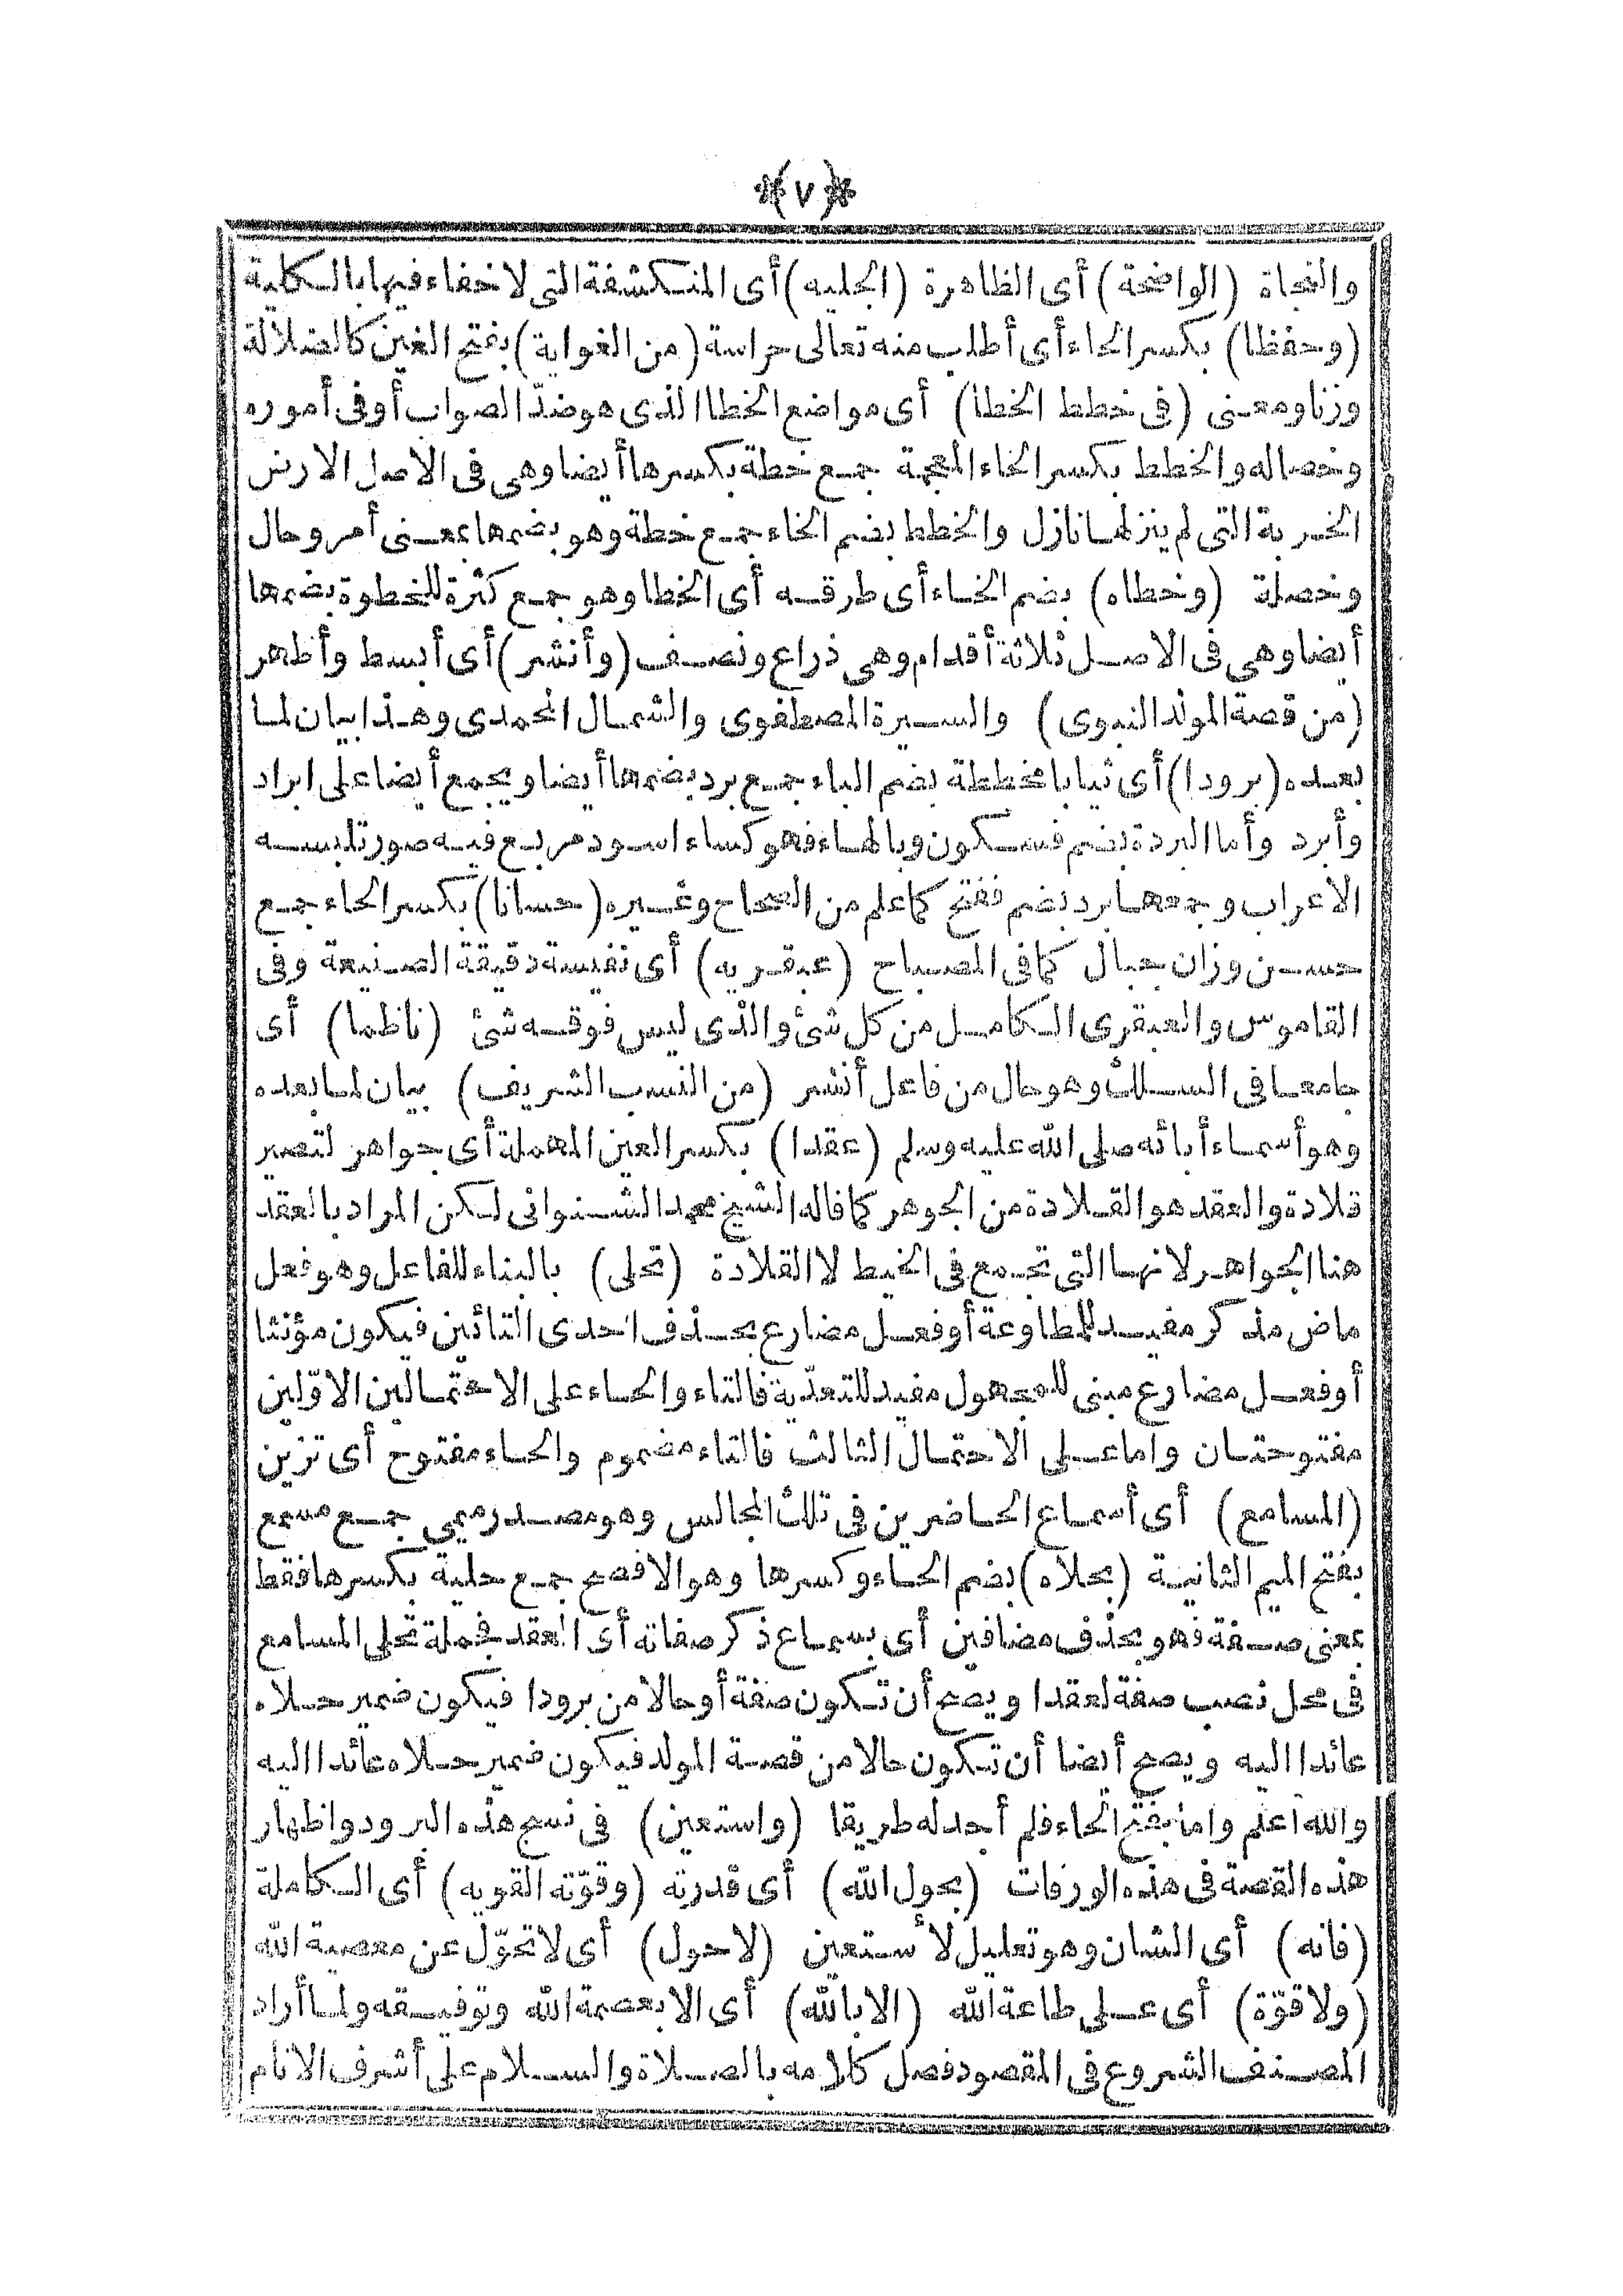 *(٧)*
والنجاة (الواضحة) أى الظاهرة (الجليه) أى المنكشفة التى لا خفاء فيها بالكلية
(وحفظا) بكسر الحاء أى أطلب منه تعالى حراسة (من الغواية) بفتح الغين كالضلالة
وزنا ومعنى (فى خطط الخطا) أى مواضع الخطا الذى هو ضدّ الصواب أو فى أموره
وخصاله والخطط بكسر الخاء المعجمة جمع خطة بكسرها أيضا وهى فى الاصل الارض
الخربة التى لم ينزلها نازل والخطط بضم الخاء جمع خطة وهو بضمها بمعنى أمر وحال
وخصلة (وخطاه) بضم الخاء أى طرقه أى الخطا وهو جمع كثرة للخطوة بضمها
أيضا وهى فى الاصل ثلاثة أقدام وهى ذراع ونصف (وأنشر) أى أبسط وأظهر
(من قصة المولد النبوى) والسيرة المصطفوى والشمال المحمدى وهذا بيان لما
بعده (برودا) أى ثيابا مخططة بضم الباء جمع برد بضمها أيضا ويجمع أيضا على ابراد
وأبرد وأما البردة بضم فسكون وبالهاء فهو كساء اسود مربع فيه صور تلبسه
الاعراب وجمعها برد بضم ففتح كما علم من الصحاح وغيره (حسانا) بكسر الحاء جمع
حسن وزان جبال كما فى المصباح (عبقريه) أى نفيسة دقيقة الصنيعة وفى
القاموس والعبقرى الكامل من كل شئ والذى ليس فوقه شئ (ناظما) أى
جامعا فى السلك وهو حال من فاعل أنشر (من النسب الشريف) بيان لما بعده
وهو أسماء أبائه صلى الله عليه وسلم (عقدا) بكسر العين المهملة أى جواهر لتصير
قلادة والعقد هو القلادة من الجوهر كما قاله الشيخ محمد الشنوانى لكن المراد بالعقد
هنا الجواهر لانها التى تجمع فى الخيط لا القلادة (تحلى) بالبناء للفاعل وهو فعل
ماض مذكر مفيد للمطاوعة أو فعل مضارع بحذف احدى التائين فيكون مؤنثا
أو فعل مضارع مبنى للمجهول مفيد للتعدّية فالتاء والحاء على الاحتمالين الاوّلين
مفتوحتان واما على الاحتمال الثالث فالتاء مضموم والحاء مفتوح أى تزين
(المسامع) أى أسماع الحاضرين فى تلك المجالس وهو مصدر ميمي جمع مسمع
بفتح الميم الثانية (بحلاه) بضم الحاء وكسرها وهو الافصح جمع حلية بكسرها فقط
بمعنى صفة فهو بحذف مضافين أى بسماع ذكر صفاته أى العقد فجملة تحلى المسامع
فى محل نصب صفة لعقدا ويصح أن تكون صفة أو حالا من برودا فيكون ضمير حلاه
عائدا اليه ويصح أيضا أن تكون حالا من قصة المولد فيكون ضمير حلاه عائدا اليه
والله اعلم واما بفتح الحاء فلم أجد له طريقا (واستعين) فى نسج هذه البرود واظهار
هذه القصة فى هذه الورقات (بحول الله) أى قدرته (وقوّته القويه) أى الكاملة
(فانه) أى الشان وهو تعليل لأستعين (لا حول) أى لا تحوّل عن معصية الله
(ولا قوّة) أى على طاعة الله (الا بالله) أى الا بعصمة الله وتوفيقه ولما أراد
المصنف الشروع فى المقصود فصل كلامه بالصلاة والسلام على أشرف الانام